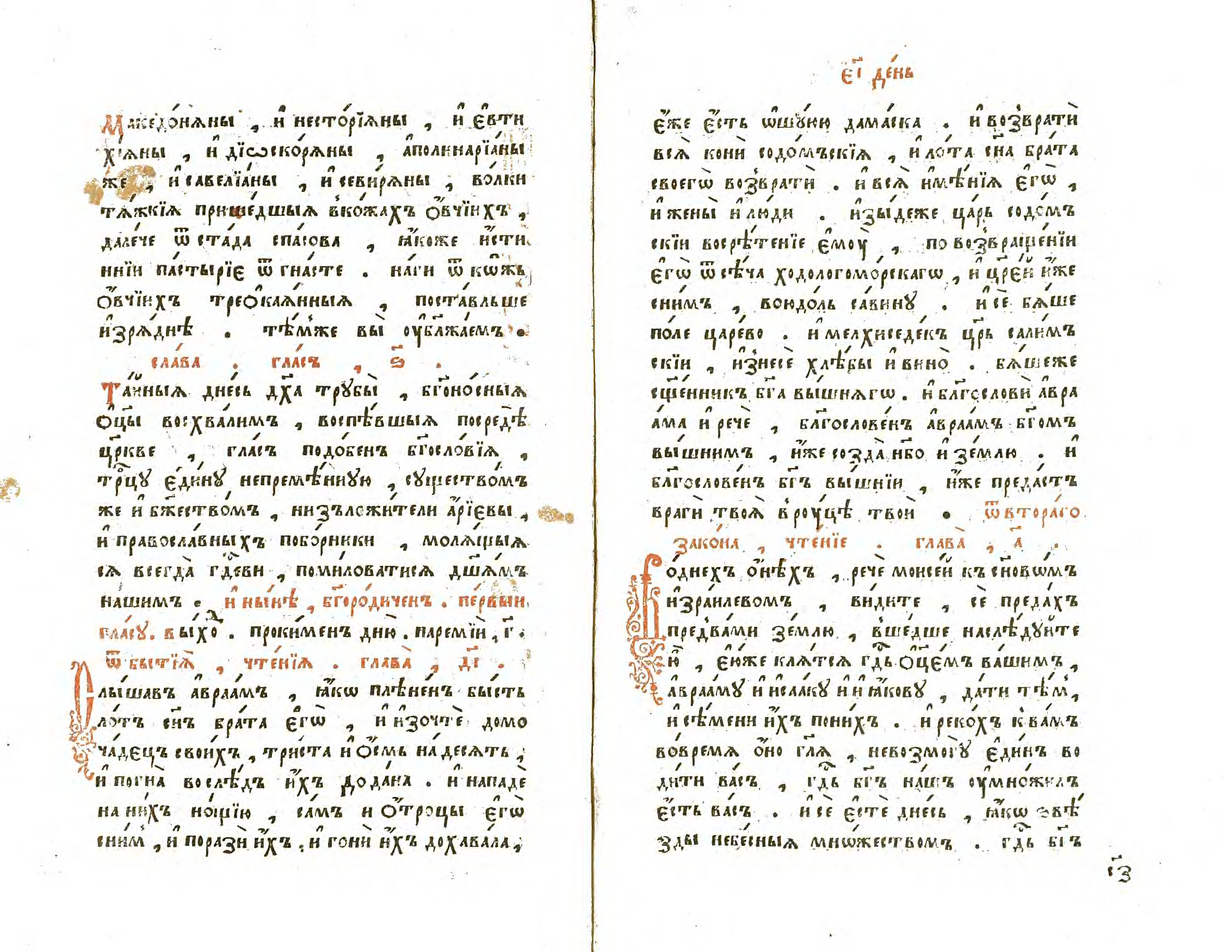 Македо́нѧны , и҆ несторїѧны , и҆ є҆вти
хїѧны , и҆ дїѡскорѧны , аполинарїѧны
же , и҆ савелїѧны , и҆ севирѧны , волки
тѧжкїѧ пришедшыѧ вкожахъ ѻвчїихъ ,
далече ѿ стада спасова , ꙗкоже исти
ннїи пастырїє ѿгнасте . наги ѿ кѡжъ
ѻвчїихъ треѻкаѧнныѧ , поставльше
изрѧднѣ . тѣмже вы оублажаемъ .
слава . гласъ , ѕ҃ .
Тайныѧ днесь дх҃а трубы , бг҃оносныѧ
ѻцы восхвалимъ , воспѣвшыѧ посредѣ
цр҃кве , гласъ подобенъ бг҃ословїѧ ,
трⷪ҇цу єдину непремѣнную , существомъ
же и бж҃ествомъ , низъложители а҆рїєвы ,
и҆ православныхъ поборники , молѧщыѧ
сѧ всегда гдⷭ҇еви , помиловатисѧ дш҃ѧмъ
нашимъ . и нынѣ , бг҃ородиченъ . первыи
гласу . выхоⷣ . прокименъ дню . паремїи , г҃ .
ѿ бытїѧ , чтенїѧ . глава , д҃і .
Слышавъ авраамъ , ꙗкѡ плѣненъ бысть
лотъ сн҃ъ брата єгѡ , и изочте домо
чадецъ своихъ , триста и ѻсмь надесѧть ,
и погна вослѣдъ ихъ додана . и нападе
на нихъ нощїю , самъ и ѻтроцы єгѡ
сним , и порази ихъ , и гони ихъ дохавала ,
є҃і день
єже єсть ѡшуюю дамаска . и возврати
всѧ кони содомъскїѧ , и лота сн҃а брата
своегѡ возврати . и всѧ имѣнїѧ єгѡ ,
и жены и люди . изыдеже царь содом
скїи восрѣтенїе ємоу , по возвращенїи
єгѡ ѿ сѣча ходологоморскагѡ , и цр҃ей иже
снимъ , воюдоль савину . и се бѧше
поле царево . и мелхиседекъ цр҃ь салим
скїи , изнесе хлѣбы и вино . бѧшеже
сщ҃енникъ бг҃а вышнѧгѡ . и благослови авра
ама и рече , благословенъ авраамъ бг҃омъ
вышнимъ , иже созда нб҃о и землю . и
благословенъ бг҃ъ вышнїи , иже предастъ
враги твоѧ вроуцѣ твои . ѿвтораго
закона , чтенїе . глава , а҃ .
Воднехъ ѻнѣхъ , рече моисей къ сн҃овѡмъ
израилевом , видите , се предахъ
предвами землю , вшедше наслѣдуйте
ю , єюже клѧтсѧ гдⷭ҇ь ѻцемъ вашим ,
аврааму и исааку и иꙗкову , дати тѣм ,
и сѣмени ихъ поних . и рекохъ к вамъ
вовремѧ ѻно гл҃ѧ , невозмогу єдин во
дити васъ , гдⷭ҇ь бг҃ъ нашъ оумножилъ
єсть васъ . и се єсте днесь , ꙗкѡ звѣ
зды небесныѧ мнѡжествомъ . гдⷭ҇ь бг҃ъ
з҃і